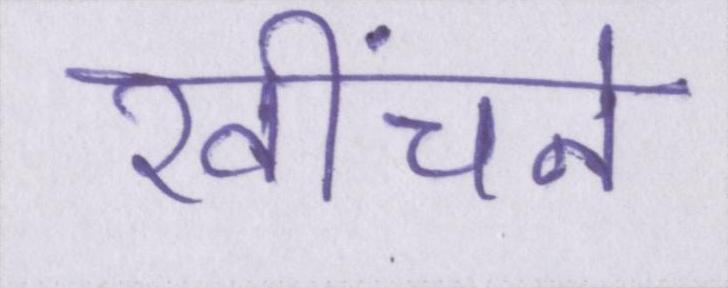 खींचने